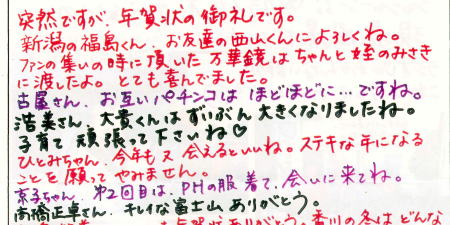 突然ですが、年賀状の御礼です。
新潟の福島くん、お友達の西山くんによろしくね。
ファンの集いの時に頂いた万華鏡はちゃんと姪のみさき
に渡したよ。とても喜んでました。
古屋さん、お互いパチンコはほどほどに…ですね。
浩美さん、大貴くんはずいぶん大きくなりましたね。
子育て頑張って下さいね♡
ひとみちゃん、今年も又会えるといいね。ステキな年になる
ことを願ってやみません。
京子ちゃん、第2回目は、PHの服着て、会いに来てね。
高橋正卓さん、キレイな富士山ありがとう。
年賀状ありがとう。香川の冬はどんな